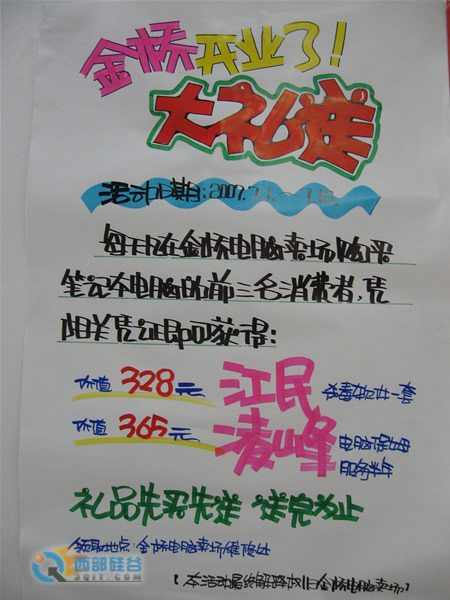 金桥开业了!
大礼送
活动日期:2007.7.
每日在金桥电脑卖场购买
笔记本电脑的前三名消费者,凭
相关凭证即可获得:
价值328元 江民 杀毒软件一套
价值365元 凌峰 电脑保姆
服务半年
礼品先买先送 送完为止
领取地点:金桥电脑卖场维修处
【本活动最终解释权归金桥电脑卖场】
西部硅谷
3QIT.COM